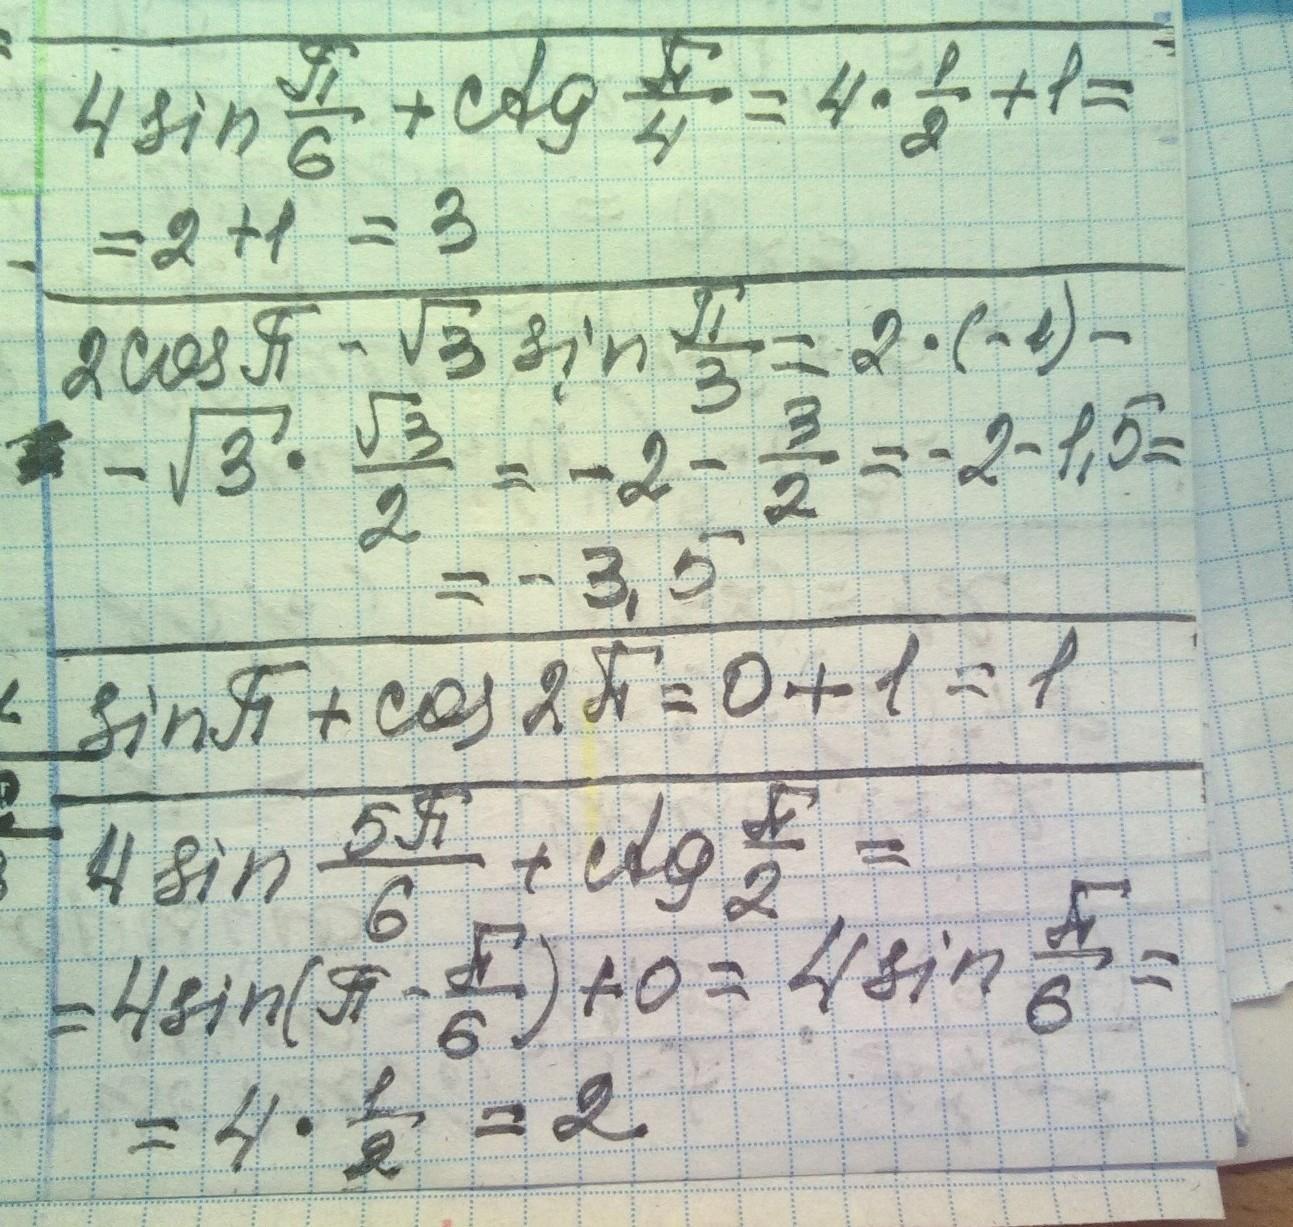 4 sin π/6 + ctg π/4 = 4 · 1/2 + 1 =
= 2 + 1 = 3
2 cos π - √3 sin π/3 = 2 · (-1) -
- √3 · √3/2 = -2 - 3/2 = -2 - 1,5 =
= -3,5
sin π + cos 2π = 0 + 1 = 1
4 sin 5π/6 + ctg π/2 =
= 4 sin(π - π/6) + 0 = 4 sin π/6 =
= 4 · 1/2 = 2